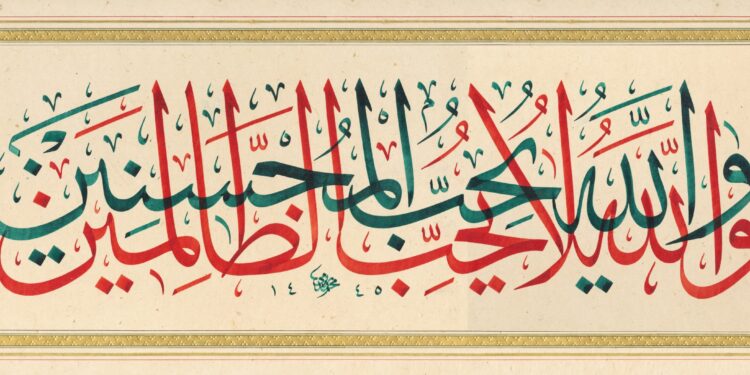 والله يحب المحسنين
والله لا يحب الظالمين
١٤٤٥